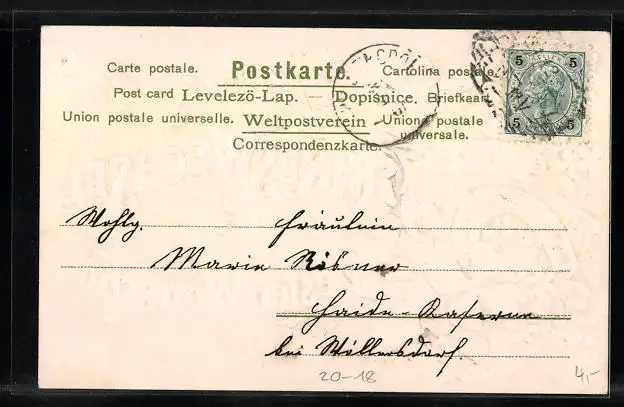 Carte postale. Postkarte. Cartolina postale.
Post card Levelezö-Lap. — Dopisnice. Briefkaart
Union postale universelle. Weltpostverein Union postale universale.
Correspondenzkarte.
5 5
5 5
Wohlg. Fräulein
Marie
Haide-Kaserne
bei Wöllersdorf.
20-18 4,-